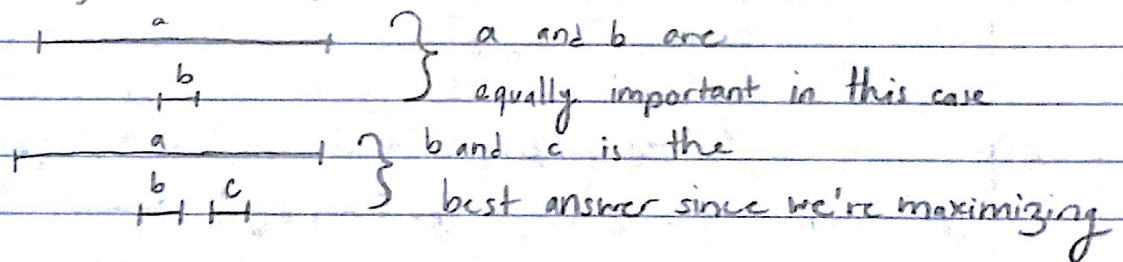 a
a and b are
b
equally important in this case
a
b and c is the
b c
best answer since we're maximizing